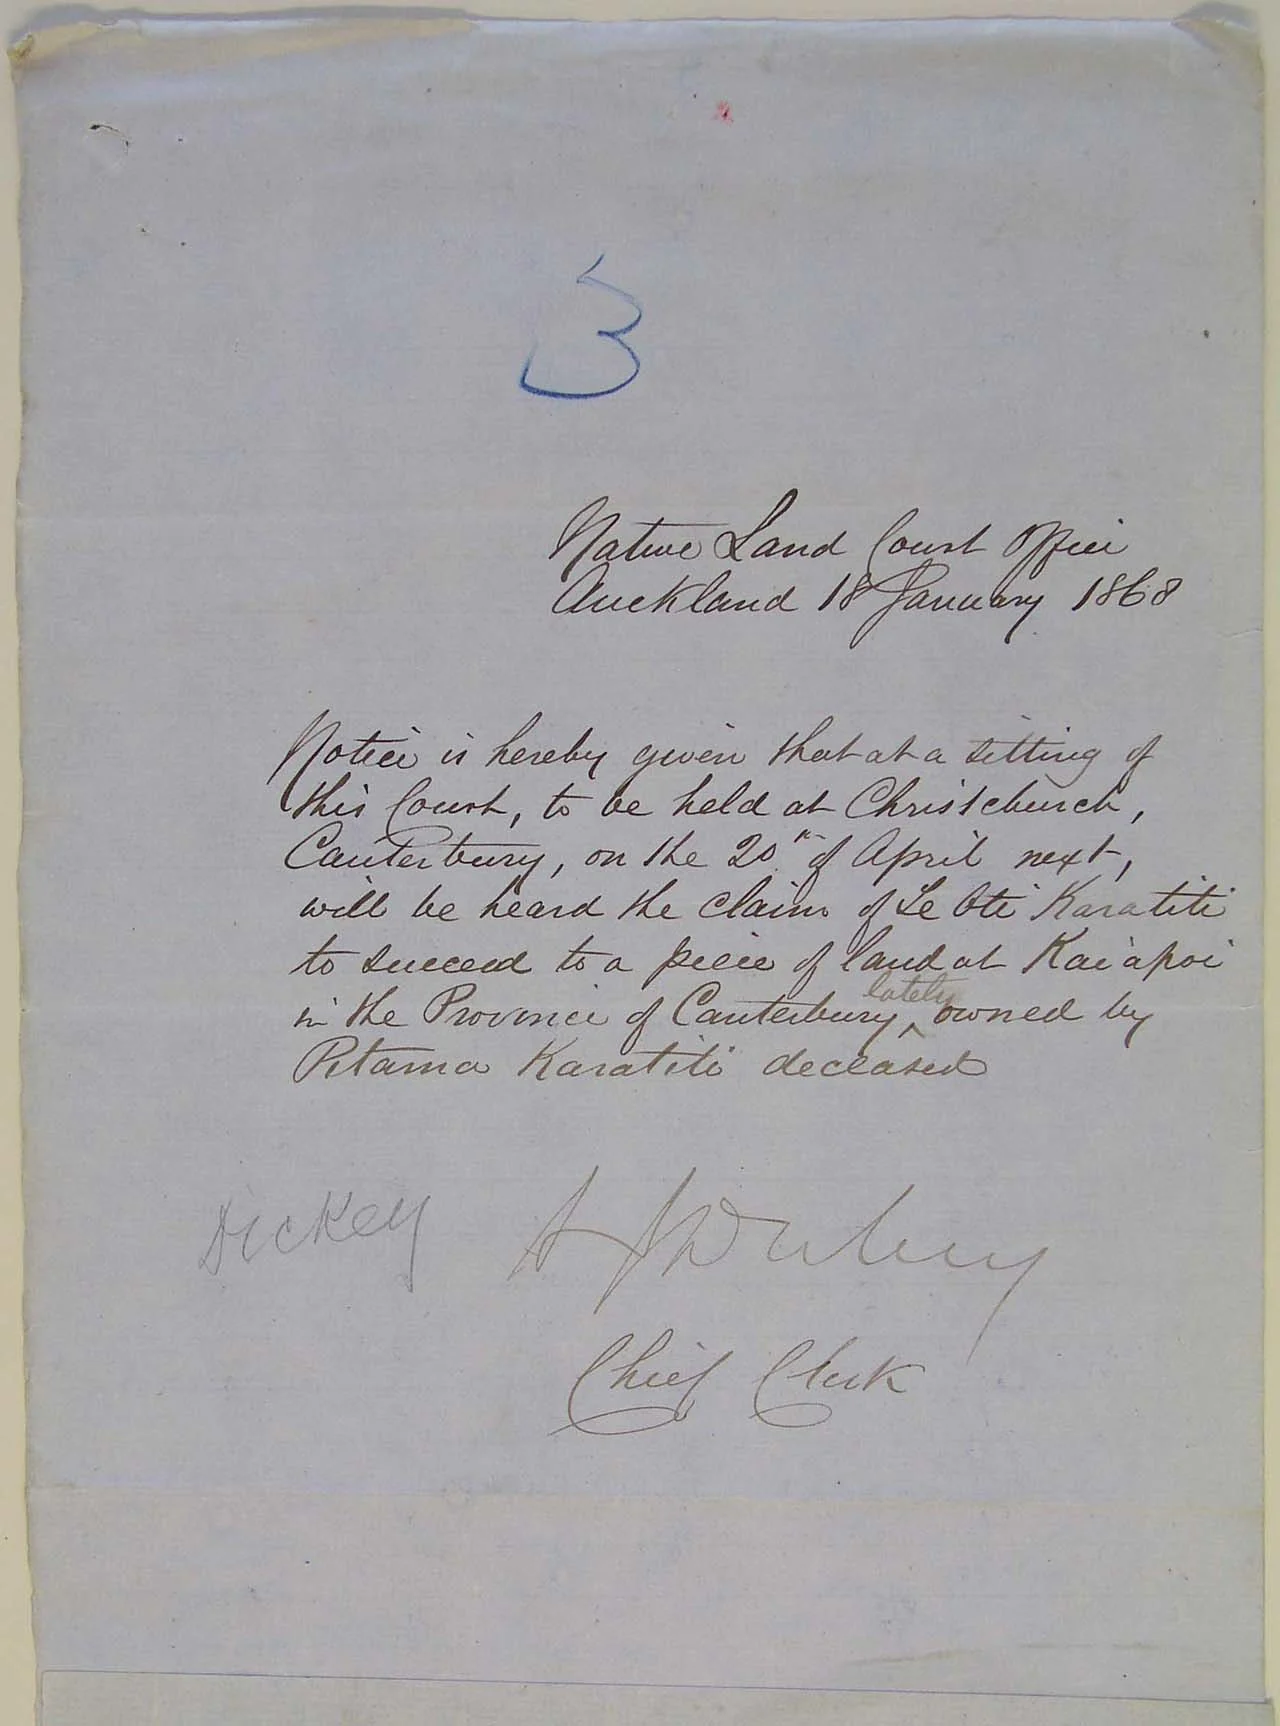 3
Native Land Court Office
Auckland 18 January 1868
Notice is hereby given that at a sitting of
this Court, to be held at Christchurch,
Canterbury, on the 20th of April next,
will be heard the claim of Te Oti Karatiti
to succeed to a piece of land at Kaiapoi
in the Province of Canterbury, lately owned by
Pitama Karatiti deceased
Dickey
Chief Clerk